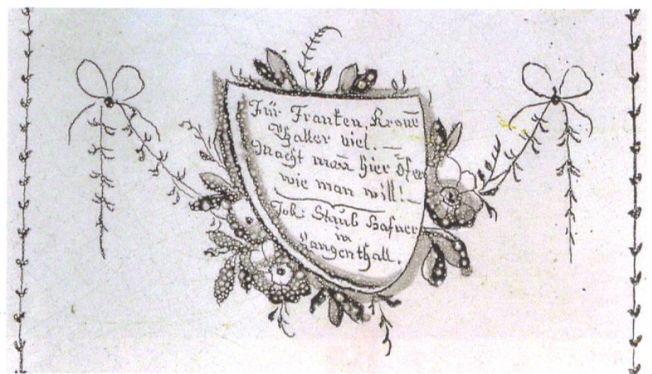 Für Franken, Krone
Thaller viel. —
Macht man̄ hier Öfen
wie man will! —
Joh: Staub Hafner
in
Langenthall.